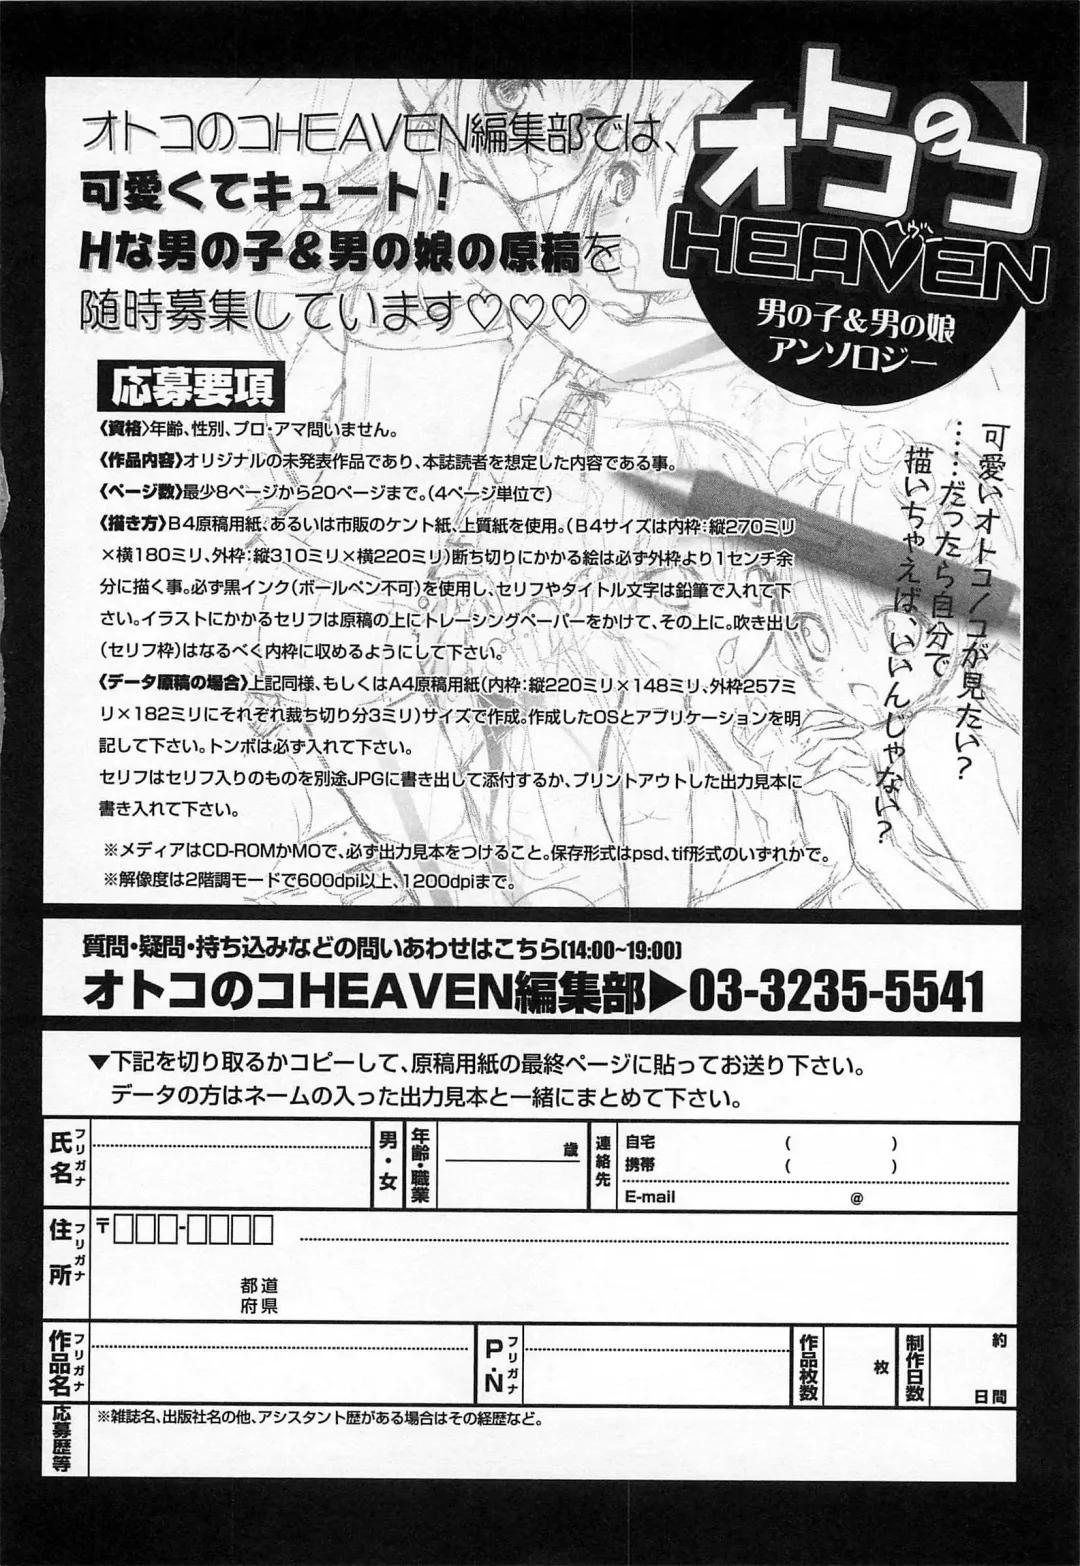 オトコのコ
HEAVEN
ヘヴン
男の子&男の娘
アンソロジー
オトコのコHEAVEN編集部では、
可愛くてキュート!
Hな男の子&男の娘の原稿を
随時募集しています♡♡♡
可愛いオトコノコが見たい?
……だったら自分で
描いちゃえば、いいんじゃない?
応募要項
〈資格〉年齢、性別、プロ・アマ問いません。
〈作品内容〉オリジナルの未発表作品であり、本誌読者を想定した内容である事。
〈ページ数〉最少8ページから20ページまで。(4ページ単位で)
〈描き方〉B4原稿用紙、あるいは市販のケント紙、上質紙を使用。(B4サイズは内枠:縦270ミリ
×横180ミリ、外枠:縦310ミリ×横220ミリ)断ち切りにかかる絵は必ず外枠より1センチ余
分に描く事。必ず黒インク(ボールペン不可)を使用し、セリフやタイトル文字は鉛筆で入れて下
さい。イラストにかかるセリフは原稿の上にトレーシングペーパーをかけて、その上に。吹き出し
(セリフ枠)はなるべく内枠に収めるようにして下さい。
〈データ原稿の場合〉上記同様、もしくはA4原稿用紙(内枠:縦220ミリ×148ミリ、外枠257ミ
リ×182ミリにそれぞれ裁ち切り分3ミリ)サイズで作成。作成したOSとアプリケーションを明
記して下さい。トンボは必ず入れて下さい。
セリフはセリフ入りのものを別途JPGに書き出して添付するか、プリントアウトした出力見本に
書き入れて下さい。
※メディアはCD-ROMかMOで、必ず出力見本をつけること。保存形式はpsd、tif形式のいずれかで。
※解像度は2階調モードで600dpi以上、1200dpiまで。
質問・疑問・持ち込みなどの問いあわせはこちら(14:00~19:00)
オトコのコHEAVEN編集部▶03-3235-5541
▼下記を切り取るかコピーして、原稿用紙の最終ページに貼ってお送り下さい。
データの方はネームの入った出力見本と一緒にまとめて下さい。
氏名
フリガナ
男・女
年齢・職業
歳
連絡先
自宅 ( )
携帯 ( )
E-mail @
住所
フリガナ
〒□□□-□□□□
都道
府県
作品名
フリガナ
P.N
フリガナ
作品枚数
枚
制作日数
約
日間
応募歴等
※雑誌名、出版社名の他、アシスタント歴がある場合はその経歴など。